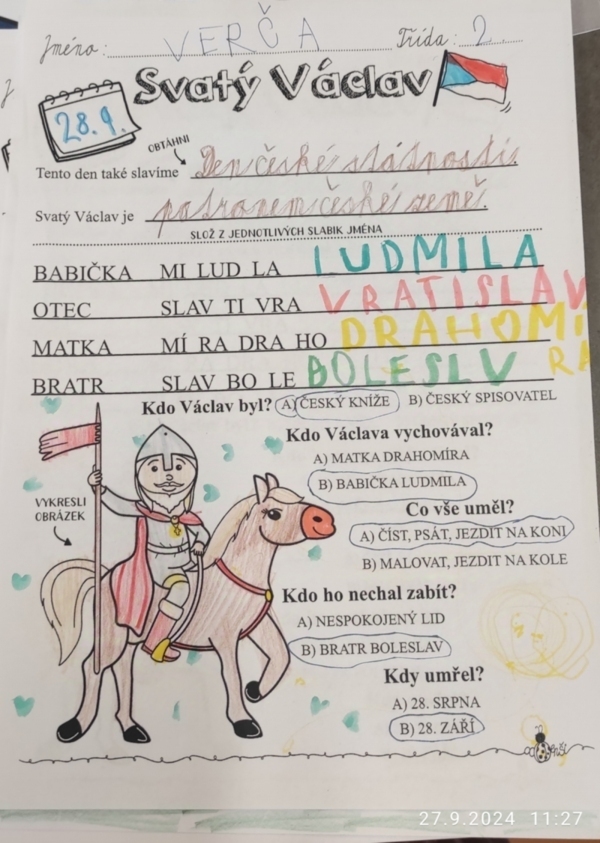 Jméno: VERČA Třída: 2.
Svatý Václav
28.9.
OBTÁHNI
Tento den také slavíme Den české státnosti.
Svatý Václav je patronem české země.
SLOŽ Z JEDNOTLIVÝCH SLABIK JMÉNA
BABIČKA MI LUD LA LUDMILA
OTEC SLAV TI VRA VRATISLAV
MATKA MÍ RA DRA HO DRAHOMI
RA
BRATR SLAV BO LE BOLESLV
Kdo Václav byl? A) ČESKÝ KNÍŽE B) ČESKÝ SPISOVATEL
Kdo Václava vychovával?
A) MATKA DRAHOMÍRA
B) BABIČKA LUDMILA
Co vše uměl?
A) ČÍST, PSÁT, JEZDIT NA KONI
B) MALOVAT, JEZDIT NA KOLE
VYKRESLI
OBRÁZEK
Kdo ho nechal zabít?
A) NESPOKOJENÝ LID
B) BRATR BOLESLAV
Kdy umřel?
A) 28. SRPNA
B) 28. ZÁŘÍ
27.9.2024 11:27